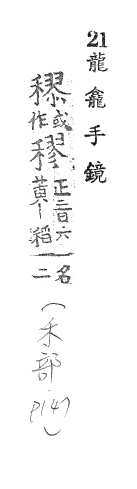 21 龍龕手鏡
或作穋正二音六黄丨稻名二
(禾部 P147)